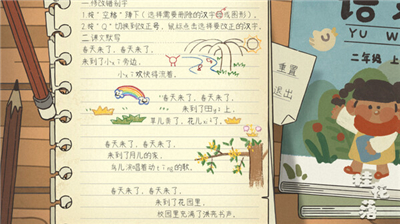 一 修改错别字
1.按“空格”蹲下（选择需要删除的汉字或图形）。
2.按“Q”切换到改正号，鼠标点击选择要改正的汉字。
二 课文默写
春天来了，春天来了，
来到了小x、旁边，
小x、欢快得流着。
春天来了，春天来了，
来到了田q上，
草儿青了，花儿xi了。
春天来了，春天来了，
来到了月儿的家，
鸟儿演唱着动tīng的歌。
春天来了，春天来了，
来到了花园里，
校园里充满了
书声。
重置
退出
语
YU W
二年级 上
桂花落